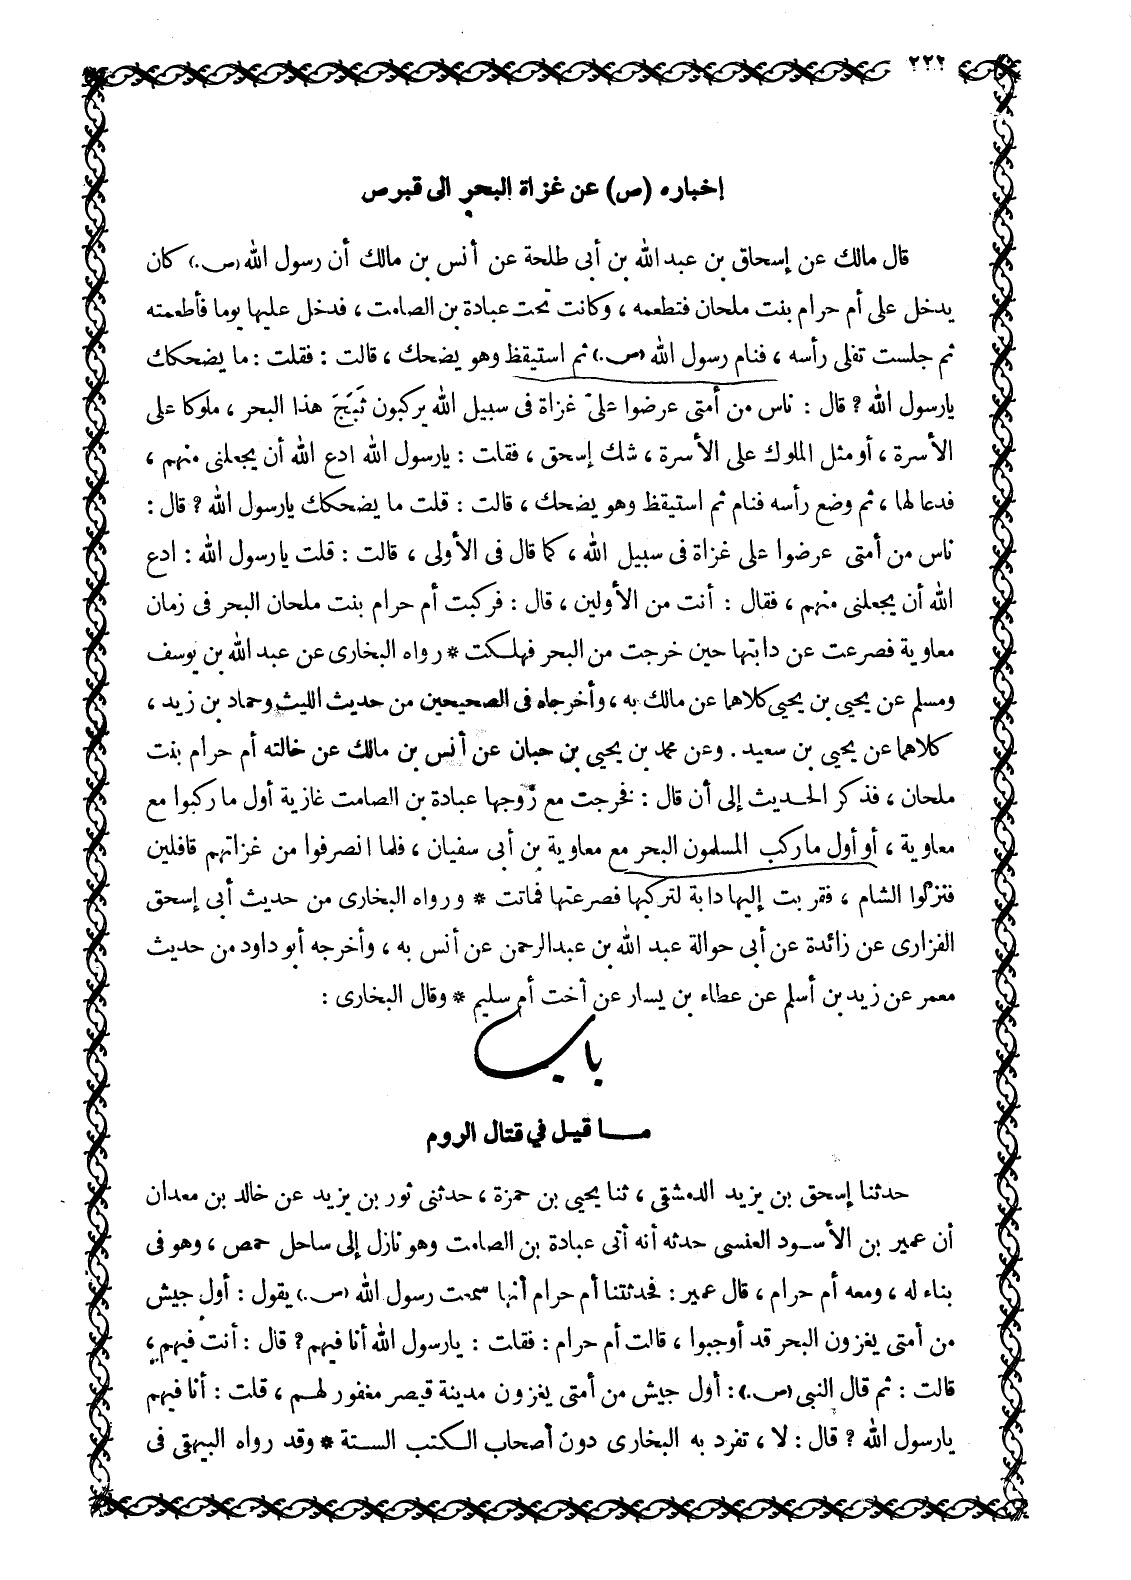 ٢٢٢
إخباره (ص) عن غزاة البحر الى قبرص
قال مالك عن إسحاق بن عبد الله بن أبى طلحة عن أنس بن مالك أن رسول الله (ص.) كان
يدخل على أم حرام بنت ملحان فتطعمه ، وكانت تحت عبادة بن الصامت ، فدخل عليها يوما فأطعمته
ثم جلست تفلى رأسه ، فنام رسول الله (ص.) ثم استيقظ وهو يضحك ، قالت : فقلت : ما يضحكك
يارسول الله ? قال : ناس من أمتى عرضوا علىّ غزاة فى سبيل الله يركبون ثَبَجَ هذا البحر ، ملوكا على
الأسرة ، أو مثل الملوك على الأسرة ، شك إسحق ، فقلت : يارسول الله ادع الله أن يجعلنى منهم ،
فدعا لها ، ثم وضع رأسه فنام ثم استيقظ وهو يضحك ، قالت : قلت ما يضحكك يارسول الله ? قال :
ناس من أمتى عرضوا على غزاة فى سبيل الله ، كما قال فى الأولى ، قالت : قلت يارسول الله : ادع
الله أن يجعلنى منهم ، فقال : أنت من الأولين ، قال : فركبت أم حرام بنت ملحان البحر فى زمان
معاوية فصرعت عن دابتها حين خرجت من البحر فهلكت * رواه البخارى عن عبد الله بن يوسف
ومسلم عن يحيى بن يحيى كلاهما عن مالك به ، وأخرجاه فى الصحيحين من حديث الليث وحماد بن زيد ،
كلاهما عن يحيى بن سعيد . وعن محمد بن يحيى بن حبان عن أنس بن مالك عن خالته أم حرام بنت
ملحان ، فذكر الحديث إلى أن قال : فخرجت مع زوجها عبادة بن الصامت غازية أول ما ركبوا مع
معاوية ، أو أول ما ركب المسلمون البحر مع معاوية بن أبى سفيان ، فلما انصرفوا من غزاتهم قافلين
فنزلوا الشام ، فقربت إليها دابة لتركبها فصرعتها فماتت * ورواه البخارى من حديث أبى إسحق
الفزارى عن زائدة عن أبى حوالة عبد الله بن عبدالرحمن عن أنس به ، وأخرجه أبو داود من حديث
معمر عن زيد بن أسلم عن عطاء بن يسار عن أخت أم سليم * وقال البخارى :
باب
مــا قيل في قتال الروم
حدثنا إسحق بن يزيد الدمشقى ، ثنا يحيى بن حمزة ، حدثنى ثور بن يزيد عن خالد بن معدان
أن عمير بن الأسود العنسى حدثه أنه أتى عبادة بن الصامت وهو نازل إلى ساحل حمص ، وهو فى
بناء له ، ومعه أم حرام ، قال عمير : فحدثتنا أم حرام أنها سمعت رسول الله (ص.) يقول : أول جيش
من أمتى يغزون البحر قد أوجبوا ، قالت أم حرام : فقلت : يارسول الله أنا فيهم ? قال : أنت فيهم ،
قالت : ثم قال النبى (ص.) : أول جيش من أمتى يغزون مدينة قيصر مغفور لهم ، قلت : أنا فيهم
يارسول الله ? قال : لا ، تفرد به البخارى دون أصحاب الكتب الستة * وقد رواه البيهقى فى